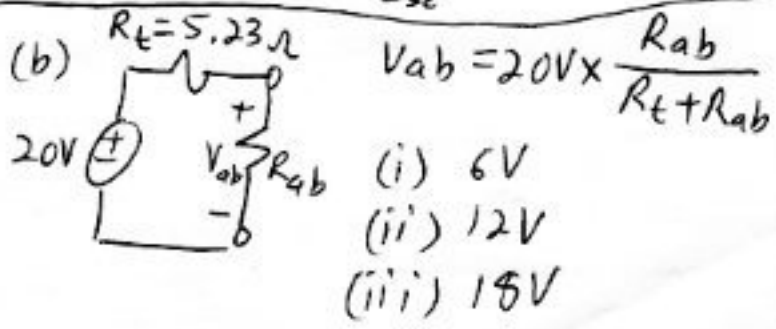 (b) Rt=5.23Ω
20V + Vab - Rab
Vab = 20V × Rab / Rt+Rab
(i) 6V
(ii) 12V
(iii) 18V